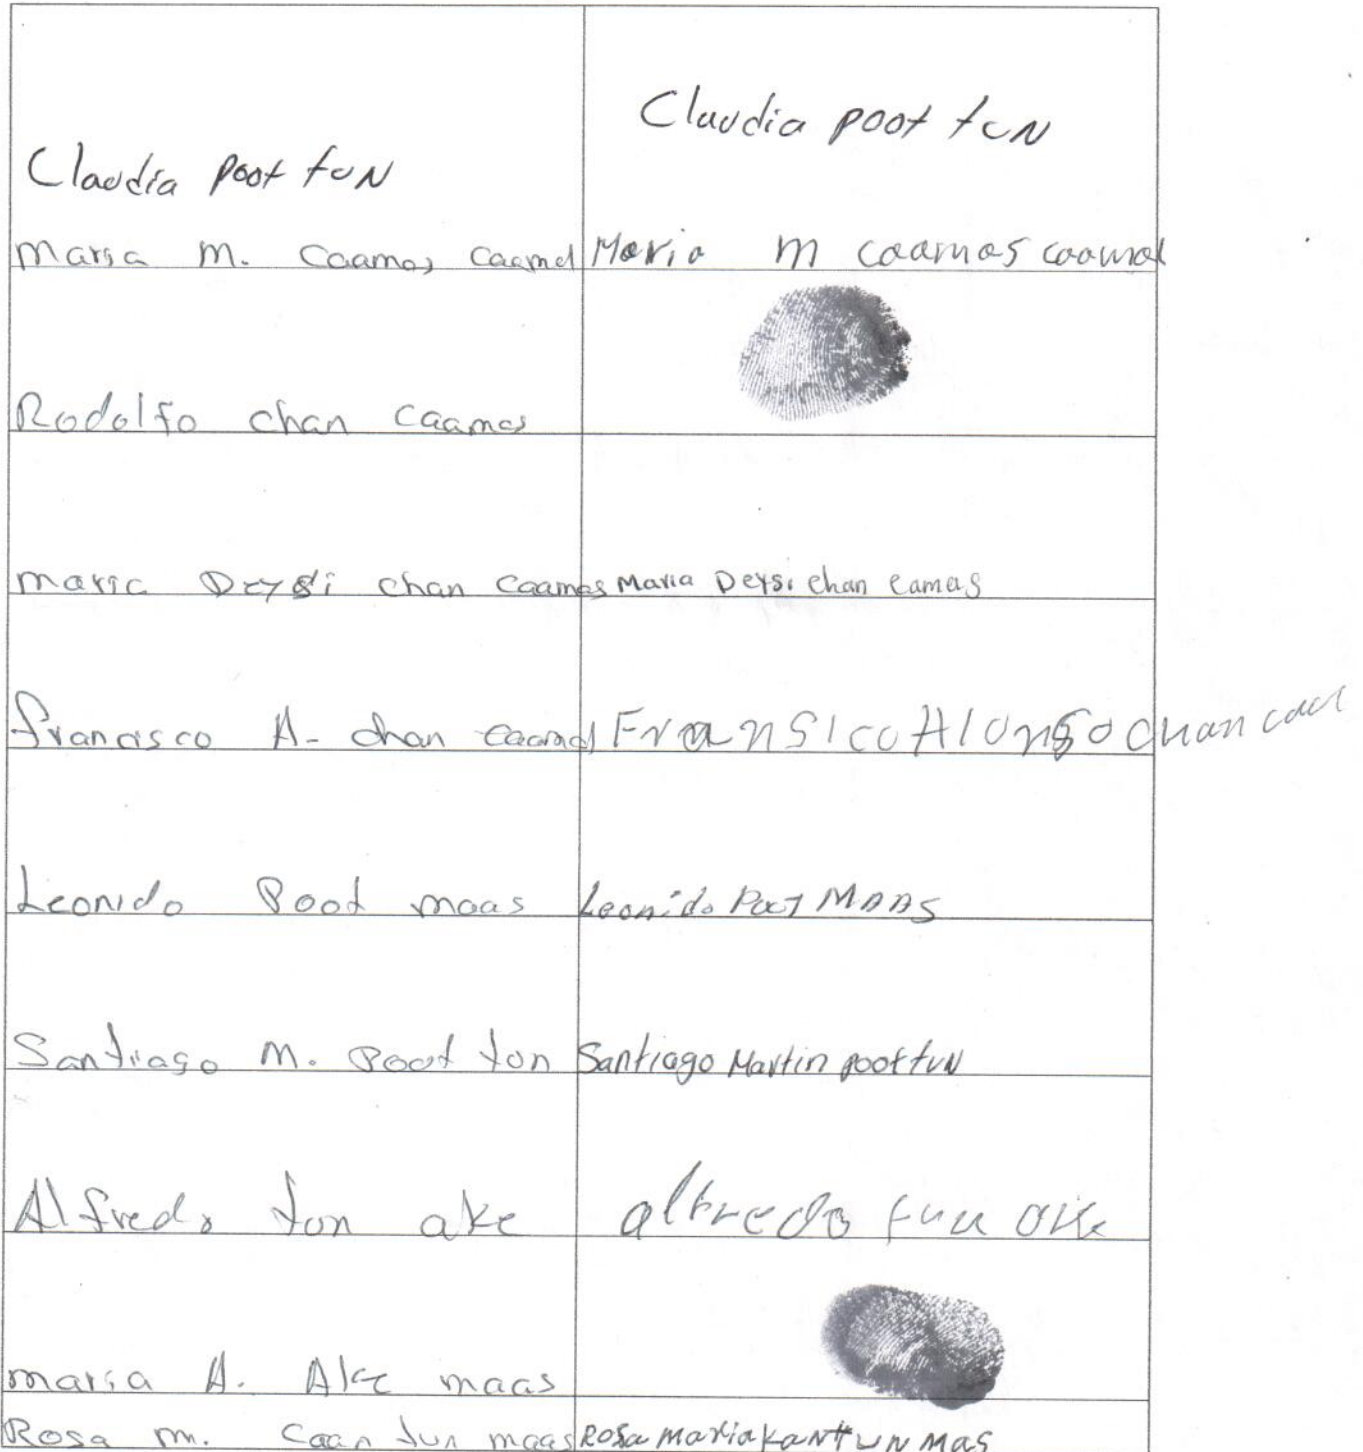 Claudia poot tun
Claudia poot tun
maria m. Caamas Caamal Maria m caamas caamal
Rodolfo chan Caamas
maria Deysi chan Caamas Maria Deysi chan camas
francisco A. chan caamal Fransico Alonso chan
Leonido Poot maas Leonido Poot MAAS
Santiago m. Poot tun Santiago Martin poot tuN
Alfredo tun ake alfredo tun ake
maria A. Ake maas
Rosa m. Caan tun maas Rosa maria kantun mas